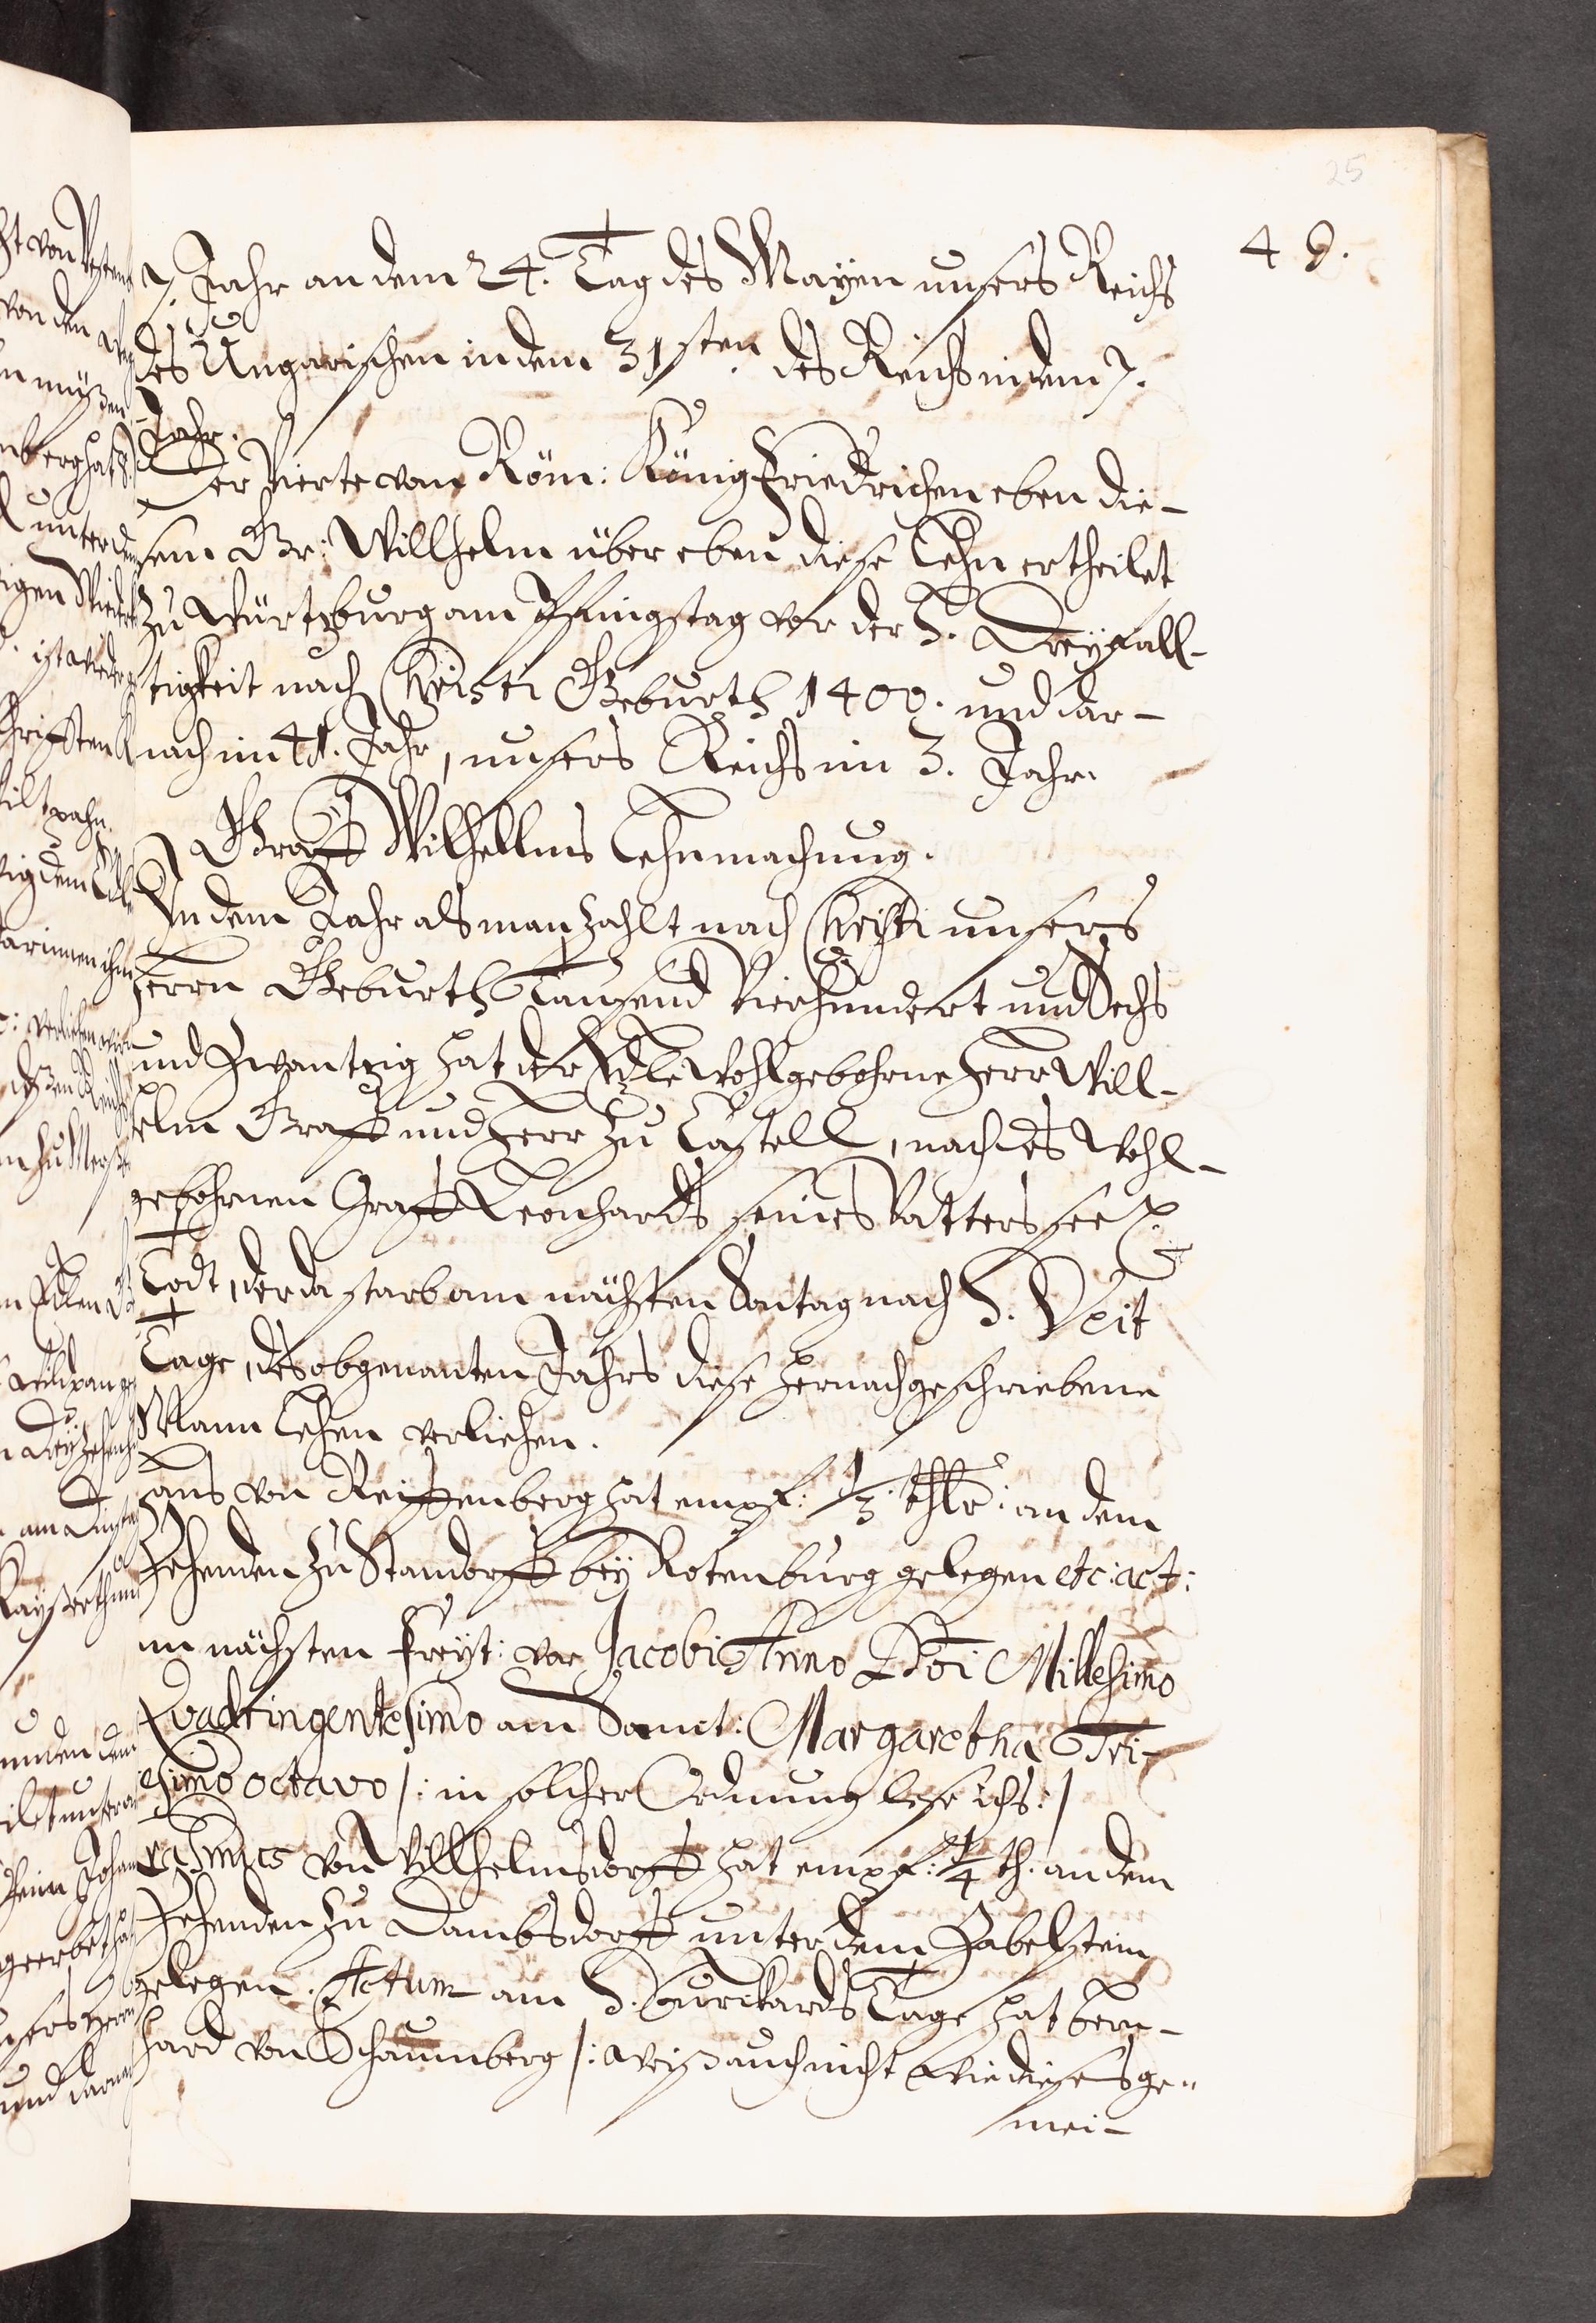 25
49.
7. Jahr an dem 24. Tag des Mayen unsers Reichs
des Ungarischen in dem 31sten. des Reichs in dem 7.
Jahr.
Der Vierte von Röm: König Friedrichen eben die-
sem Gr: Willhelm über eben diese Lehn ertheilet
zu Würtzburg am Pfingstag vor der H. Dreyfall-
tigkeit nach Christi Geburth 1400. und dar-
nach im 41. Jahr, unsers Reichs im 3. Jahr.
Graff Wilhellms Lehnmachung.
In dem Jahr als man zahlt nach Christi unsers
Herrn Geburth Tausend Vierhundert und Sechs
und Zwantzig hat der Edle Wohlgebohrne Herr Will-
helm Graff und Herr zu Castell, nach des Wohl-
gebohrnen Graff Leonhards seines Vatters seel.
Todt, der da starb am nächsten Sontag nach S. Veit
Tage, des obgenanten Jahrs diese hernachgeschriebene
Mann Lehen verliehen.
Hans von Reitzenberg hat empf: 1/3 thl: an dem
Zehenden zu Standorff bey Rotenburg gelegen etc: act:
im nächsten Freyt: vor Jacobi Anno Doi Millesimo
Quadringentesimo am Sanct: Margaretha Tri-
esimo octavo /: in solcher Ordnung lese ichs: /
Erasmus von Willhelmsdorff hat empf: 1/4 th. an dem
Zehenden zu Dambsdorff unter dem Zabelstein
gelegen. Actum am S. Burckards Tage hat Bern-
hard von Schaumberg /: weiß auch nicht wie dieses ge-
mei-